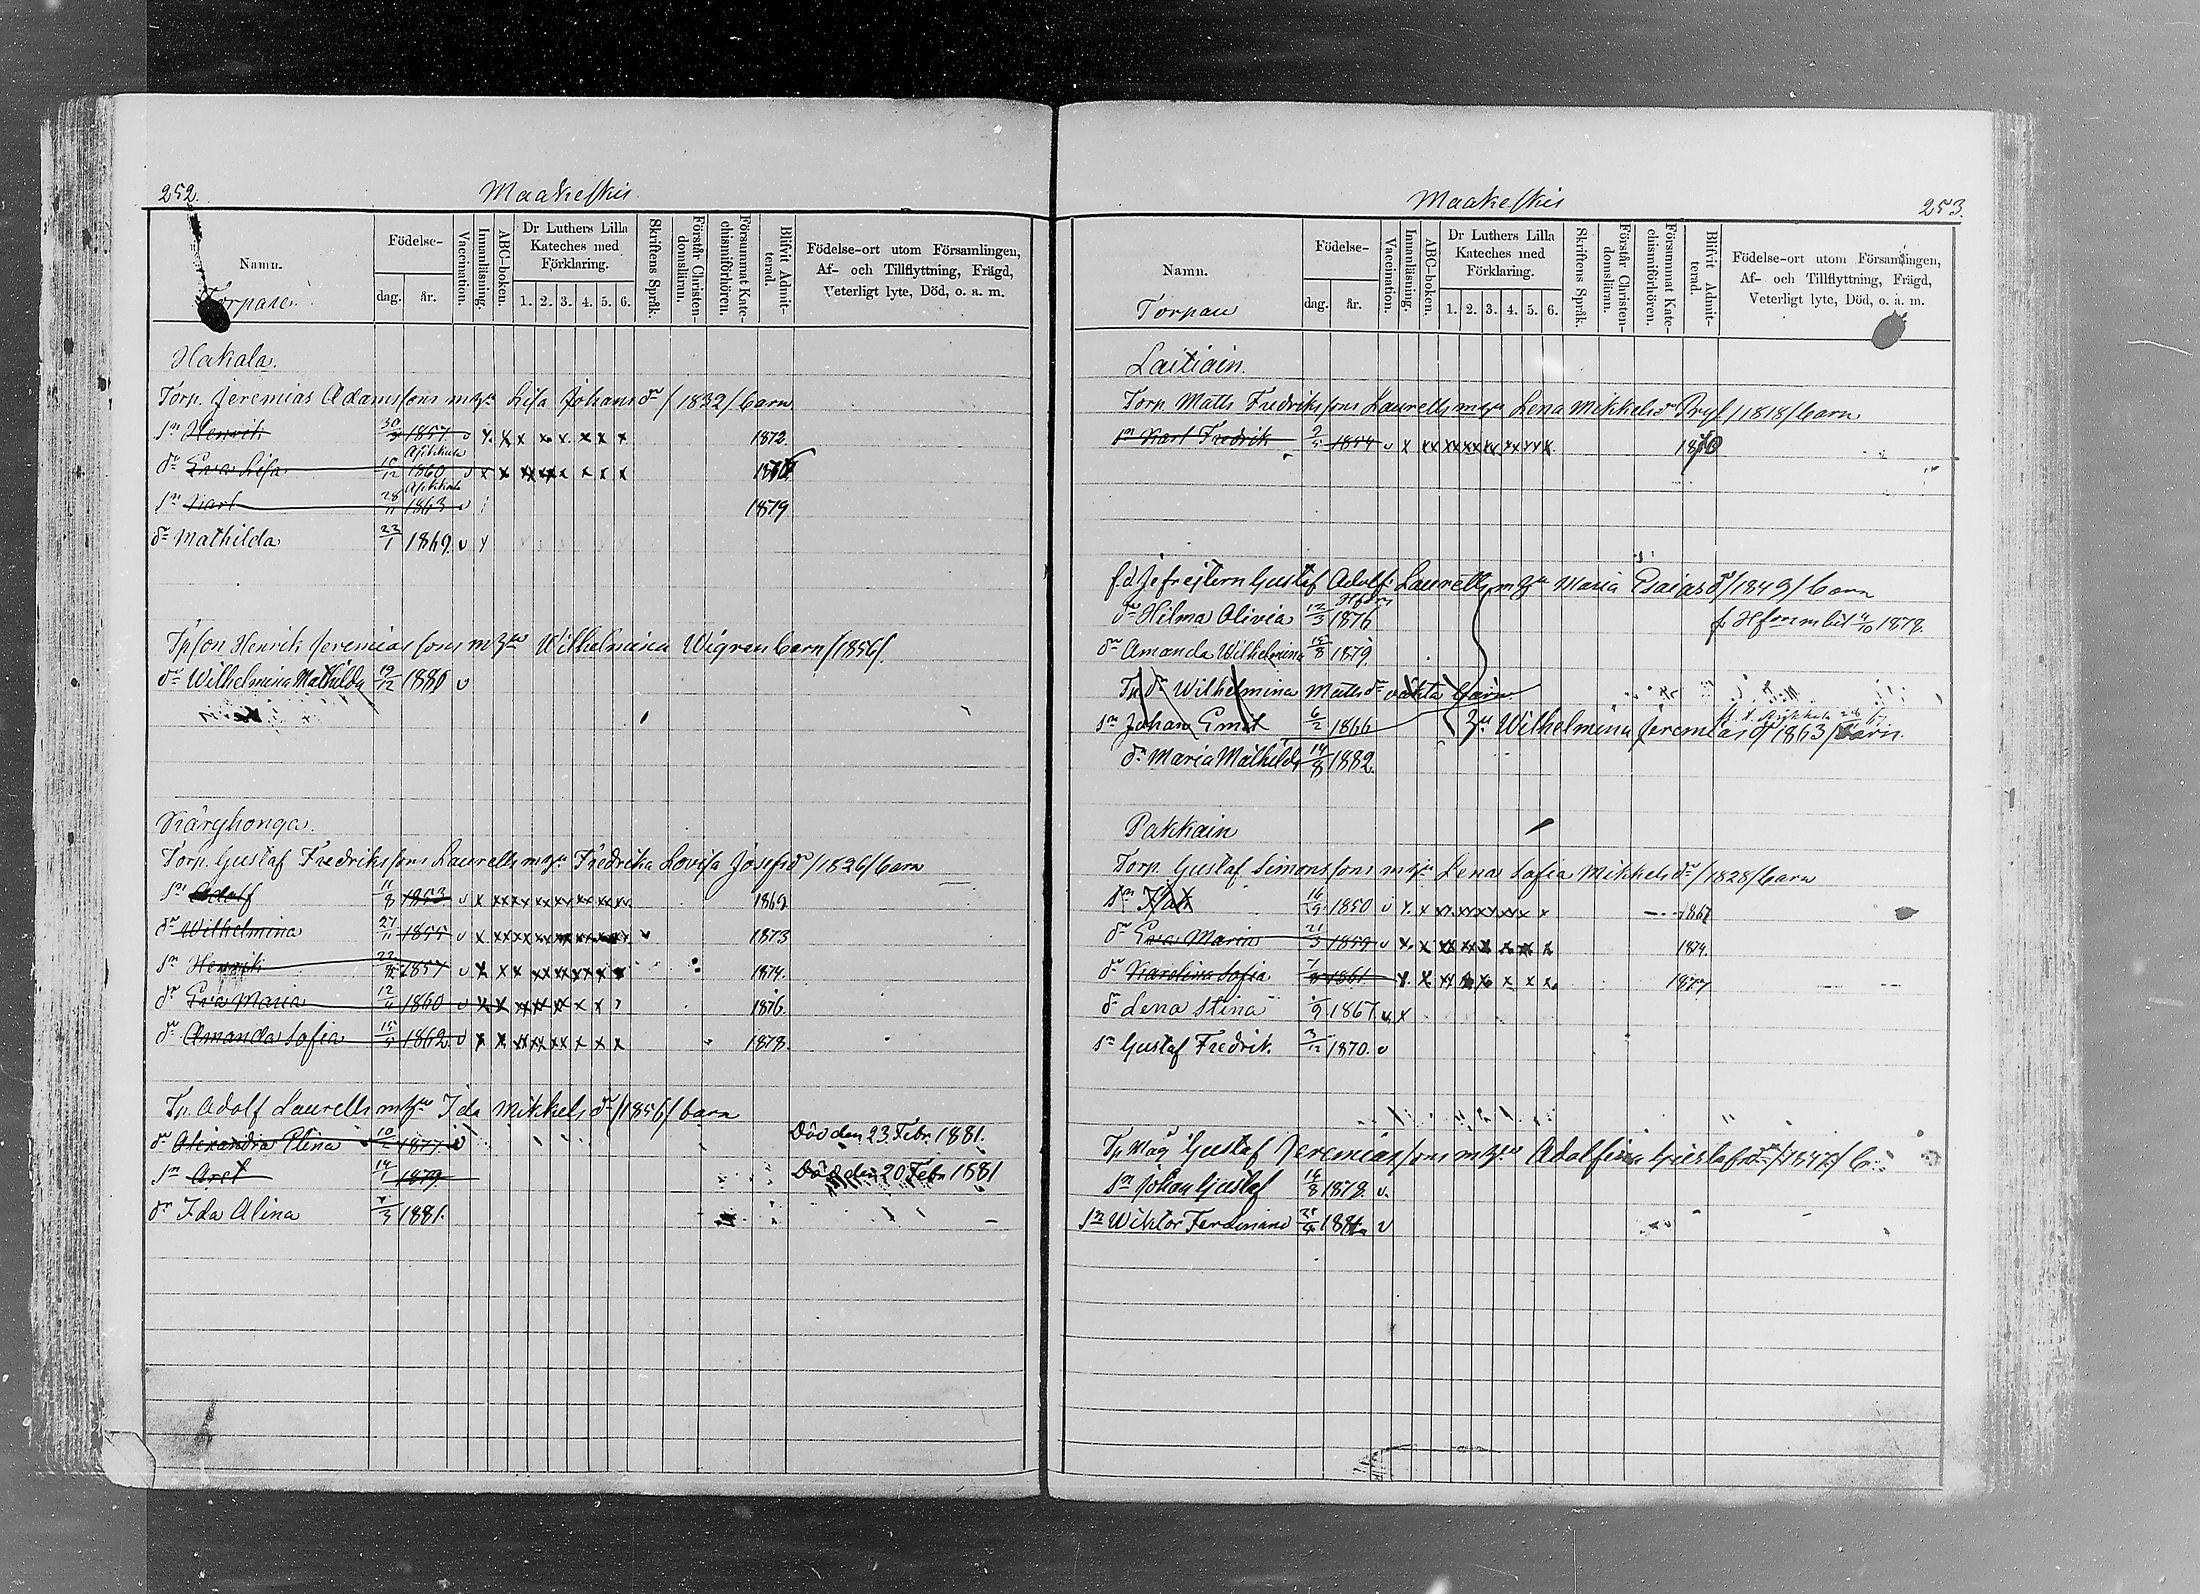 252.
Maakeskis
Namn.
Födelse-
dag. år.
Vaccination.
Innanläsning.
ABC-boken.
Dr Luthers Lilla Kateches med Förklaring.
1. 2. 3. 4. 5. 6.
Skriftens Språk.
Förstår Christendomsläran.
Försummat Katechismiförhören.
Blifvit Admitterad.
Födelse-ort utom Församlingen, Af- och Tillflyttning, Frägd, Veterligt lyte, Död, o. a. m.
Torpare
Hakala.
Torp. Jeremias Adamssons m hu Lisa Johans dr /1832/ barn
sn Henrik 30/3 1857 v x x x x x x x x 1872.
Asikkala
dr Eva Lisa 10/12 1860 v x x x x x x x x
Asikkala
sn Karl 28/11 1863 v 1879
dr Mathilda 23/1 1869. v x
Tpson Henrik Jeremiassons m hu Wilhelmina Wigren barn /1856/.
dr Wilhelmina Mathilda 19/12 1880 v
Käryhonga.
Torp. Gustaf Fredrikssons Laurells m hu Fredrika Lovisa Josefs dr /1826/ barn
sn Adolf 11/8 1853 v x xx xx xx xx xx xx 1869
dr Wilhelmina 27/11 1855 v x xx xx xx xx xx xx 1873
sn Henrik 1857 v x x x xx xx xx x x 1874.
dr Eva Maria 12/11 1860 v x x xx xx x x x 1876.
dr Amanda Sofia 15/5 1862 v x x xx xx x x x x 1878.
Tp. Adolf Laurells m hu Ida Mikkels dr /1856/ barn
dr Alexandra Elina 10/2 1877. v Död den 23 Febr. 1881.
sn Axel 14/1 1879 Död den 20 Febr 1881
dr Ida Alina 1881.
Maakeskis
253.
Namn.
Födelse-
dag. år.
Vaccination.
Innanläsning.
ABC-boken.
Dr Luthers Lilla Kateches med Förklaring.
1. 2. 3. 4. 5. 6.
Skriftens Språk.
Förstår Christendomsläran.
Försummat Katechismiförhören.
Blifvit Admitterad.
Födelse-ort utom Församlingen, Af- och Tillflyttning, Frägd, Veterligt lyte, Död, o. a. m.
Torpare
Laitiain.
Torp. Matts Fredrikssons Laurells m hu Lena Mikkels dr Pryl /1818/ barn
sn Karl Fredrik 9/5 1854 v x xx xx xx xx xx x
f.d. Gefrejtern Gustaf Adolf Laurells m hu Maria Esaias dr /1849/ barn
Hfors
dr Hilma Olivia 12/3 1876 fr Hfors m bet 4/10 1878.
dr Amanda Wilhelmina 15/8 1879
Tp. dr Wilhelmina Matts dr oäkta barn
sn Johan Emil 6/2 1866 hu Wilhelmina Jeremias dr /1863/ barn
dr Maria Mathilda 14/8 1882.
Pakkain
Torp. Gustaf Simonssons m hu Lena Sofia Mikkels dr /1828/ barn
sn Isak 16/9 1850 v x. x xx xx xx x x
dr Eva Maria 21/3 1859 v x x xx xx x x x 1874.
dr Karolina Sofia 1861 x x xx x x x x x 1877
dr Lena Stina 1867. v x
sn Gustaf Fredrik 3/12 1870. v
Tp. Måg Gustaf Jeremiassons m hu Adolfina Gustafs dr /1847/
sn Johan Gustaf 16/8 1878. v.
sn Wiktor Ferdinand v